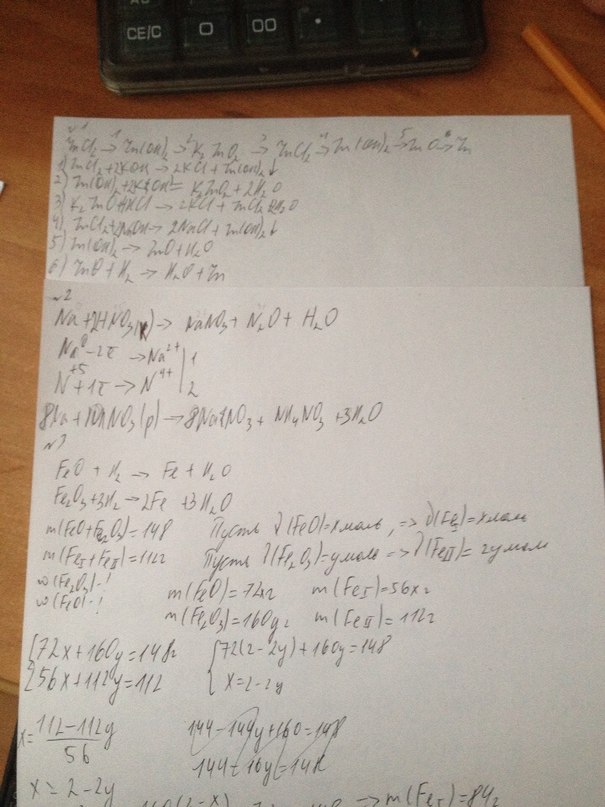 CE/C 0 00 •
№1
ZnCl₂ →¹ Zn(OH)₂ →² K₂ZnO₂ →³ ZnCl₂ →⁴ Zn(OH)₂ →⁵ ZnO →⁶ Zn
1) ZnCl₂+2KOH → 2KCl + Zn(OH)₂↓
2) Zn(OH)₂+2KOH = K₂ZnO₂ + 2H₂O
3) K₂ZnO₂+HCl → 2KCl + ZnCl₂ 2H₂O
4) ZnCl₂+2NaOH → 2NaCl + Zn(OH)₂↓
5) Zn(OH)₂ → ZnO + H₂O
6) ZnO + H₂ → H₂O + Zn
№2
Na + 2HNO₃(к) → NaNO₃ + N₂O + H₂O
Na⁰ - 2ē → Na²⁺ | 1
N⁺⁵ + 1ē → N⁴⁺ | 2
8Na + 10HNO₃(р) → 8NaNO₃ + NH₄NO₃ + 3H₂O
№3
FeO + H₂ → Fe + H₂O
Fe₂O₃+3H₂ → 2Fe + 3H₂O
m(FeO+Fe₂O₃)=148 Пусть ν(FeO)=xмоль, => ν(FeI)=xмоль
m(FeI+FeII)=112г Пусть ν(Fe₂O₃)=yмоль => ν(FeII)= 2yмоль
w(Fe₂O₃)-! m(FeO)=72xг m(FeI)=56xг
w(FeO)-! m(Fe₂O₃)=160yг m(FeII)=112г
{72x+160y=148 {72(2-2y)+160y=148
{56x+112y=112 {x=2-2y
x= 112-112y / 56 144-144y+160=148
144-16y=148
x=2-2y
=> m(FeI)=84г